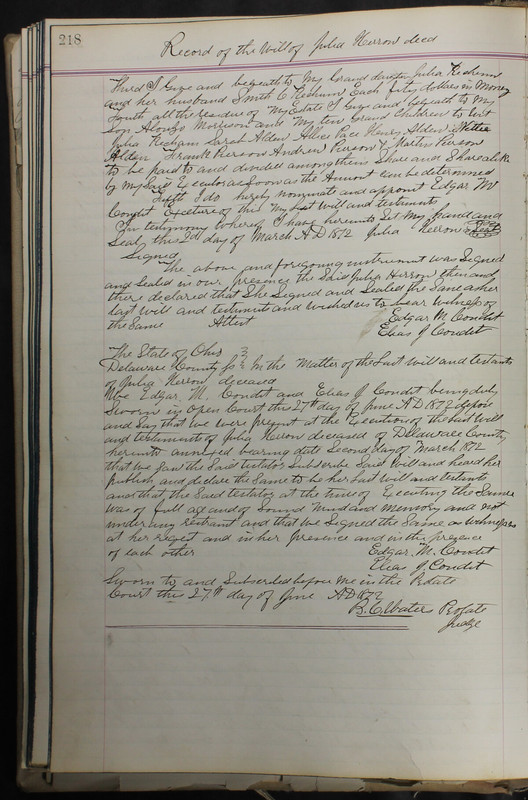 218
Record of the Will of Julia Herron decd
Third I Give and beqeath to My Grand daughter Julia Kechum
and her husband Smith C Kechum Each fifty dollars in Money
Fourth all the residue of My Estate I Give and beqeath to My
Son Alonzo Morison and My ten Grand Children to wit
Julia Kecham Sarah Alden Allice Pace Henry Alden Willie
Alden Frank Pierson Andrew Pierson & Martin Pierson
to be paid to and divided amongthem Share and Share alike
by My Said Executor as Soon as the Amont can be determined
Fifth I do hereby nominate and apoint Edgar M
Condit Executor of this My Last will and testiments
In testimony Wherof I have hereunto Set My hand and
Seal this 2d day of March AD 1872 Julia Herron Seal
Signed
The above and foregoing instrument was Signed
and Sealed in our presence the Said Julia Herron then and
there declared that She Signed and Sealed the Same as her
last will and testiment and wished us to bear witness of
the Same Attest Edgar M. Condit
Elias J Condit
The State of Ohio
Delaware County Ss In the Matter of the Last will and testants
of Julia Heron deceased
We Edgar. M. Condit and Elias J Condit being duly
Sworn in Open Court this 27th day of June AD 1872 depose
and Say that we were present at the Execution of the Last Will
and testiments of Julia Heron deceased of Delaware County
hereunto annexed bearing date Second day of March 1872
that we Saw the Said testator Subscribe Said Will and heard her
publish and declare the Same to be her Last will and testants
and that the Said testator at the time of Executing the Same
was of full age and of Sound Mind and Memory and not
under any restrant and that we Signed the Same as Witnesses
at her reqest and in her presence and in the presence
of each other Edgar. M. Condit
Elias J Condit
Sworn to and Subscribed before Me in the Probate
Court this 27th day of June AD 1872
B. C. Waters Probate
Judge